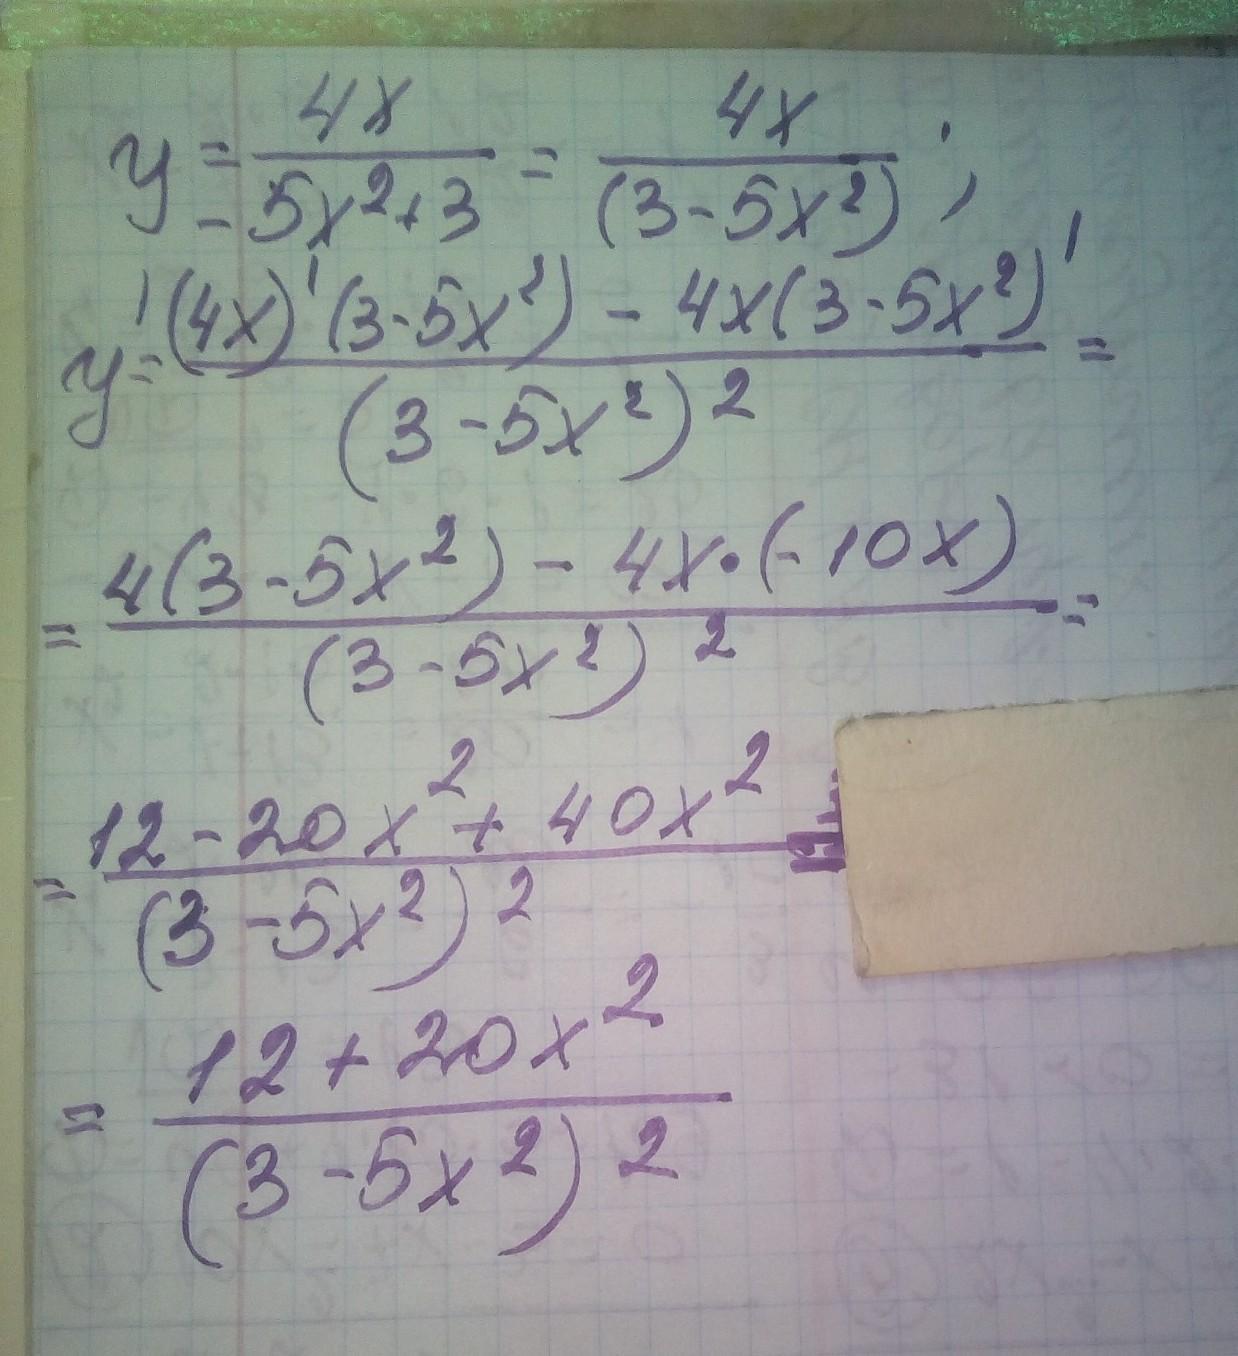 y = 4x / -5x²+3 = 4x / (3-5x²) ;
y' = (4x)'(3-5x²) - 4x(3-5x²)' / (3-5x²)² =
= 4(3-5x²) - 4x·(-10x) / (3-5x²)² =
= 12-20x²+40x² / (3-5x²)²
= 12+20x² / (3-5x²)²